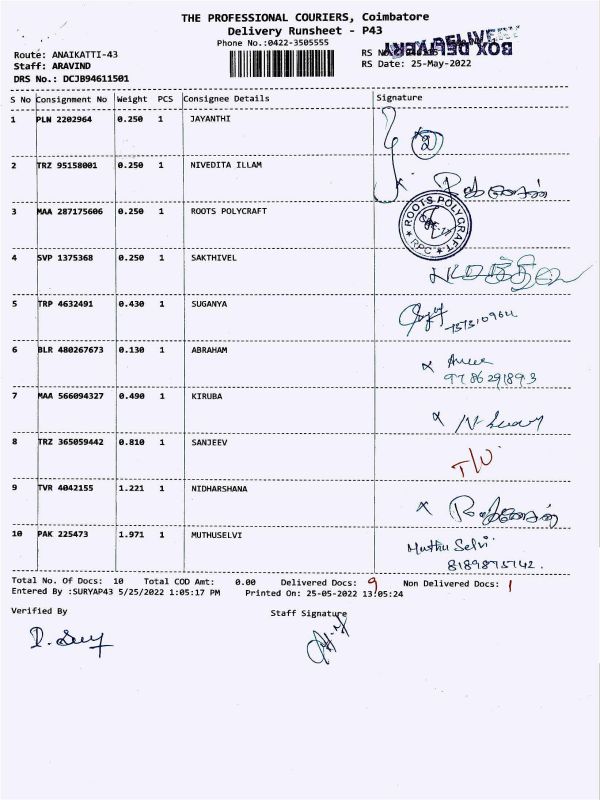 THE PROFESSIONAL COURIERS, Coimbatore
Delivery Runsheet - P43
Phone No.:0422-3505555
BOX DELIVERY
Route: ANAIKATTI-43
RS No
Staff: ARAVIND
RS Date: 25-May-2022
DRS No.: DCJB94611501
S No Consignment No Weight PCS Consignee Details Signature
1 PLN 2202964 0.250 1 JAYANTHI
2
2 TRZ 95158001 0.250 1 NIVEDITA ILLAM
3 MAA 287175606 0.250 1 ROOTS POLYCRAFT
ROOTS POLYCRAFT
RPC
4 SVP 1375368 0.250 1 SAKTHIVEL
5 TRP 4632491 0.430 1 SUGANYA
6 BLR 480267673 0.130 1 ABRAHAM
9786291893
7 MAA 566094327 0.490 1 KIRUBA
8 TRZ 365059442 0.810 1 SANJEEV
9 TVR 4042155 1.221 1 NIDHARSHANA
10 PAK 225473 1.971 1 MUTHUSELVI
Muthu Selvi
8189875742.
Total No. Of Docs: 10 Total COD Amt: 0.00 Delivered Docs: 9 Non Delivered Docs: 1
Entered By :SURYAP43 5/25/2022 1:05:17 PM Printed On: 25-05-2022 13:05:24
Verified By Staff Signature